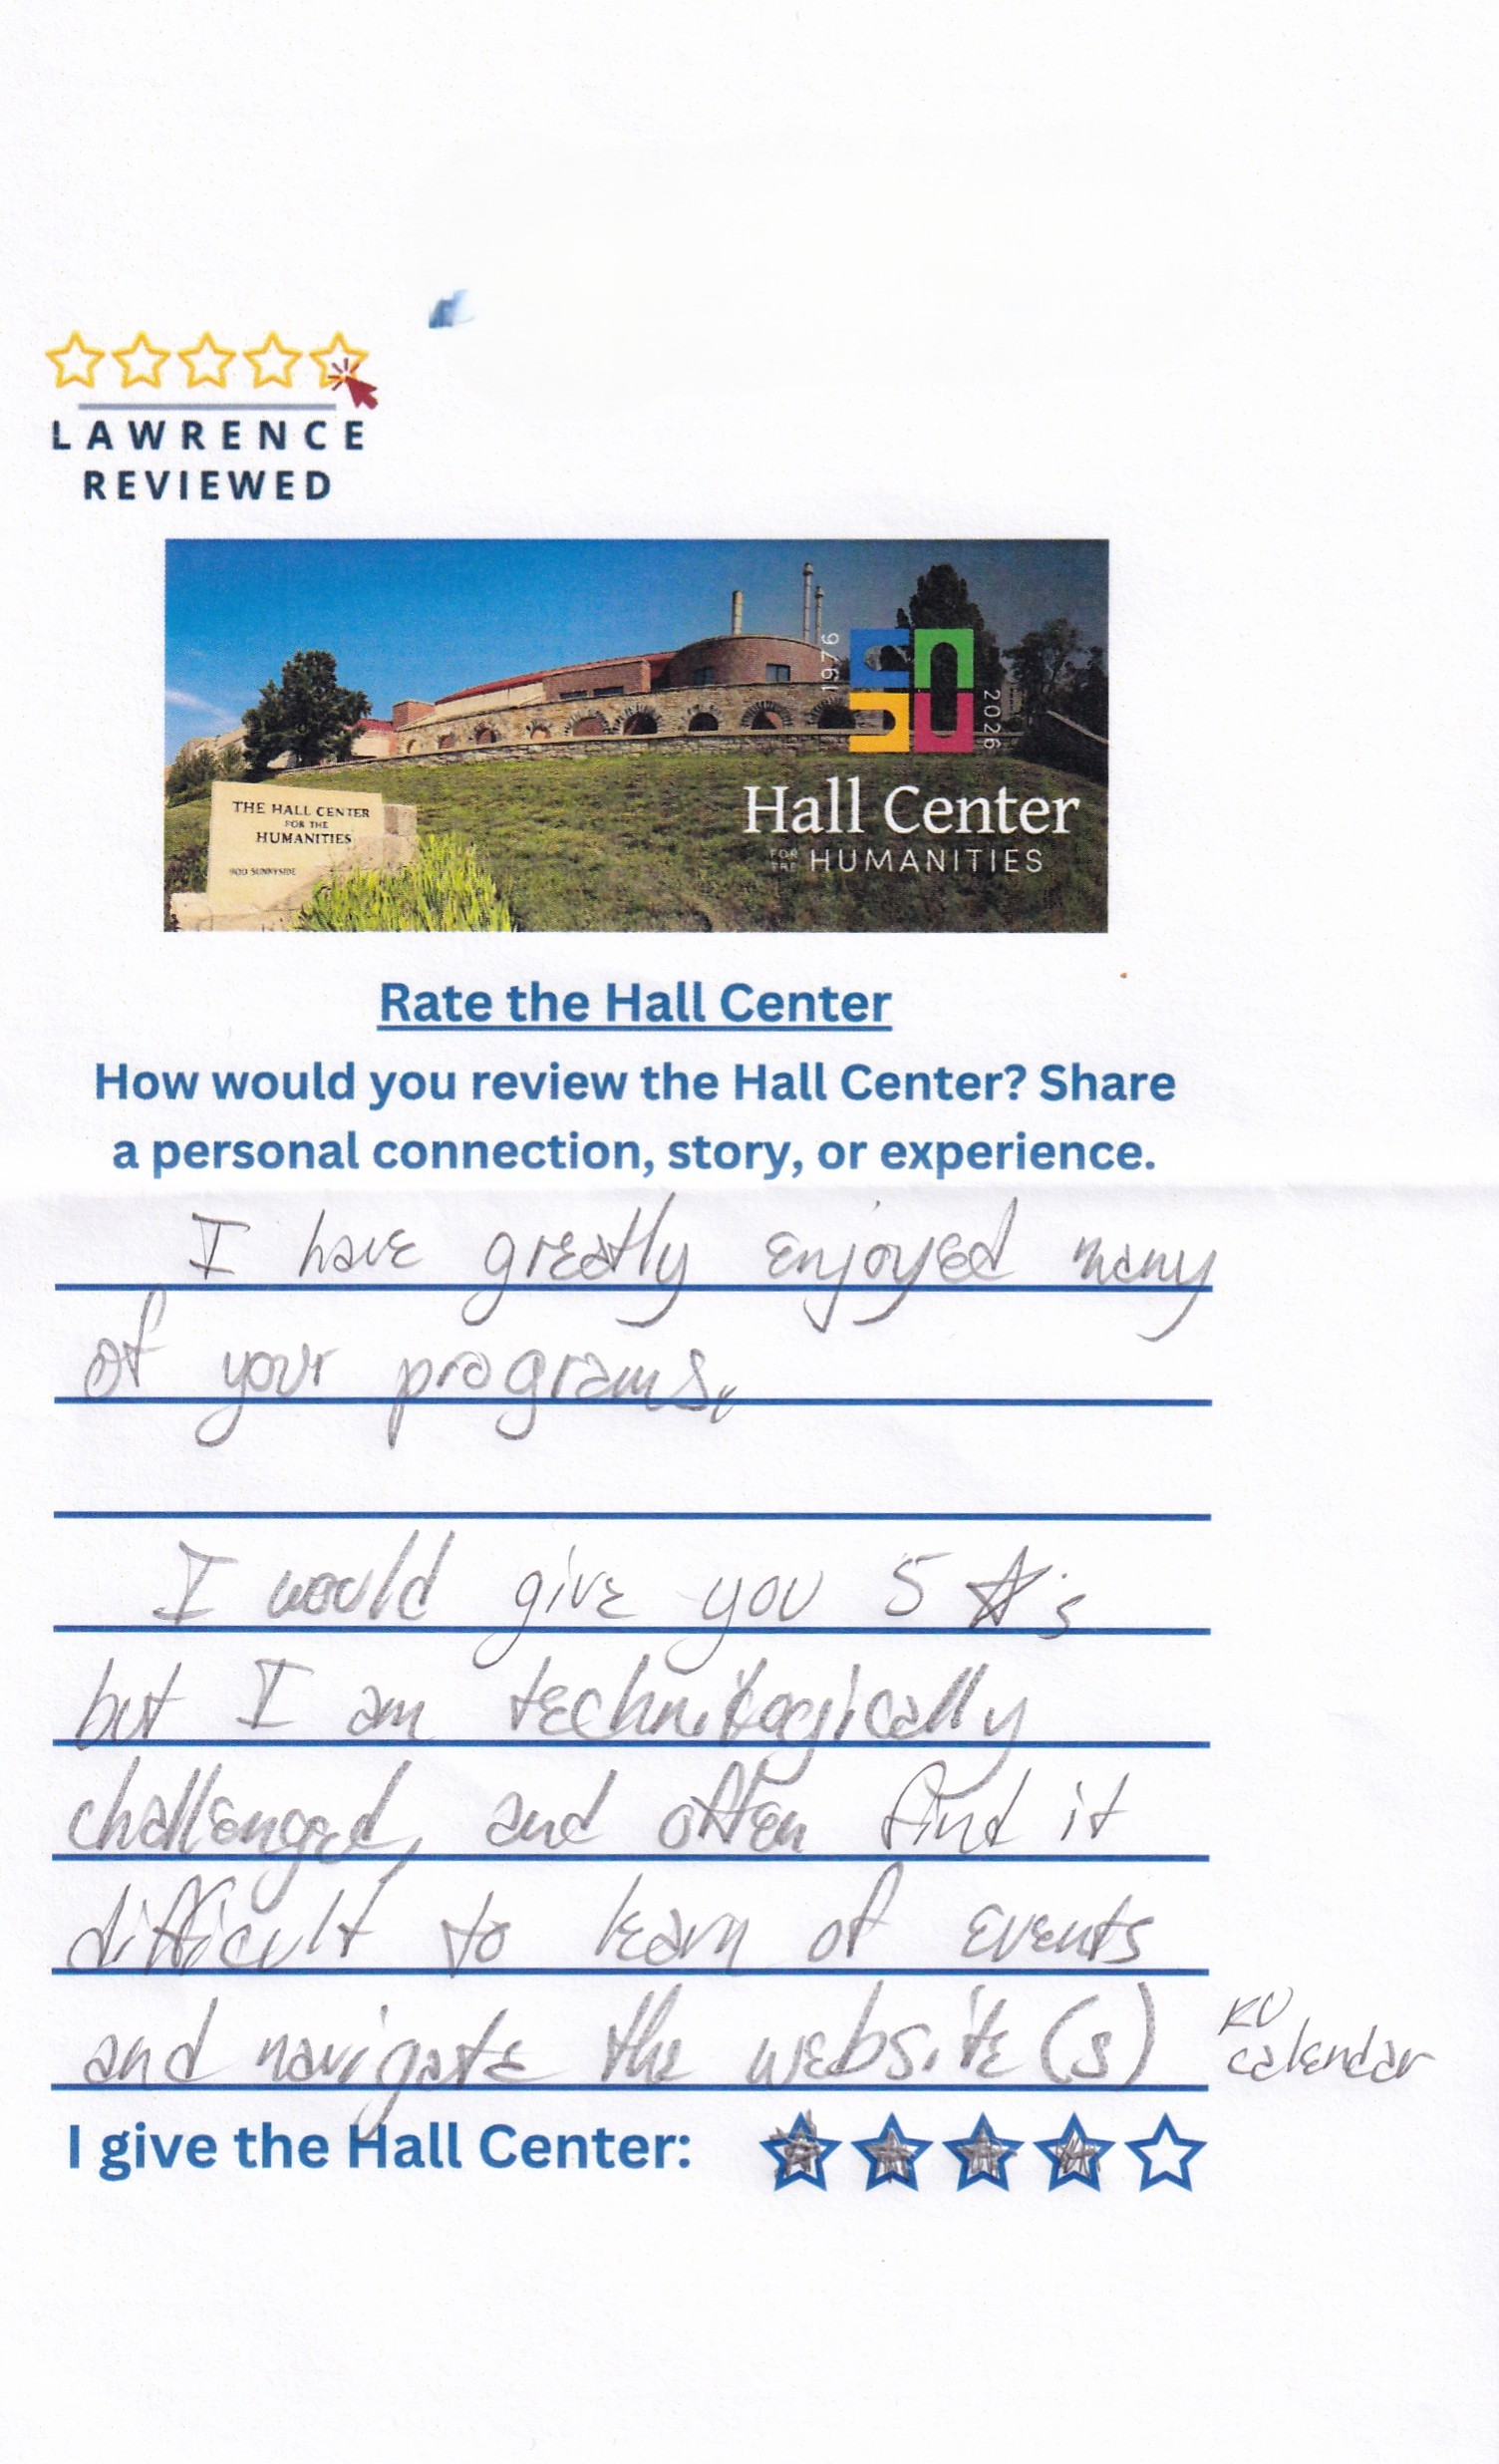 LAWRENCE
REVIEWED
1976
2026
THE HALL CENTER
FOR THE
HUMANITIES
900 SUNNYSIDE
Hall Center
FOR THE HUMANITIES
Rate the Hall Center
How would you review the Hall Center? Share
a personal connection, story, or experience.
I have greatly enjoyed many
of your programs.
I would give you 5 ☆'s
but I am technilogically
challenged, and often find it
difficult to learn of events
and navigate the website(s) KU
calendar
I give the Hall Center: